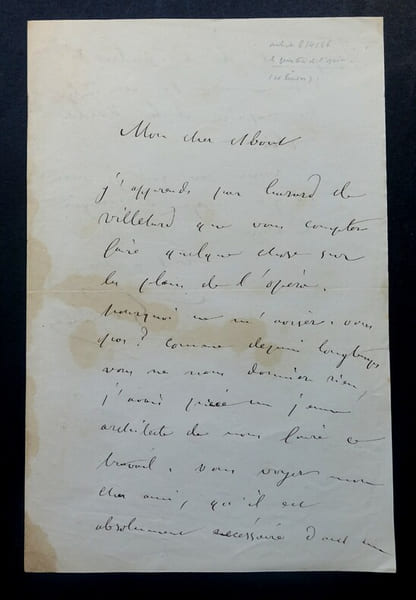 Mon cher About
j'apprends par hasard de
Villetard que vous comptez
faire quelque chose sur
les plans de l'opéra.
pourquoi ne m'aviser. vous
pas? Comme depuis longtemps
vous ne nous donniez rien,
j'avais prié un jeune
architecte de nous faire ce
travail. Vous voyez mon
cher ami, qu'il est
absolument nécéssaire d'ont un